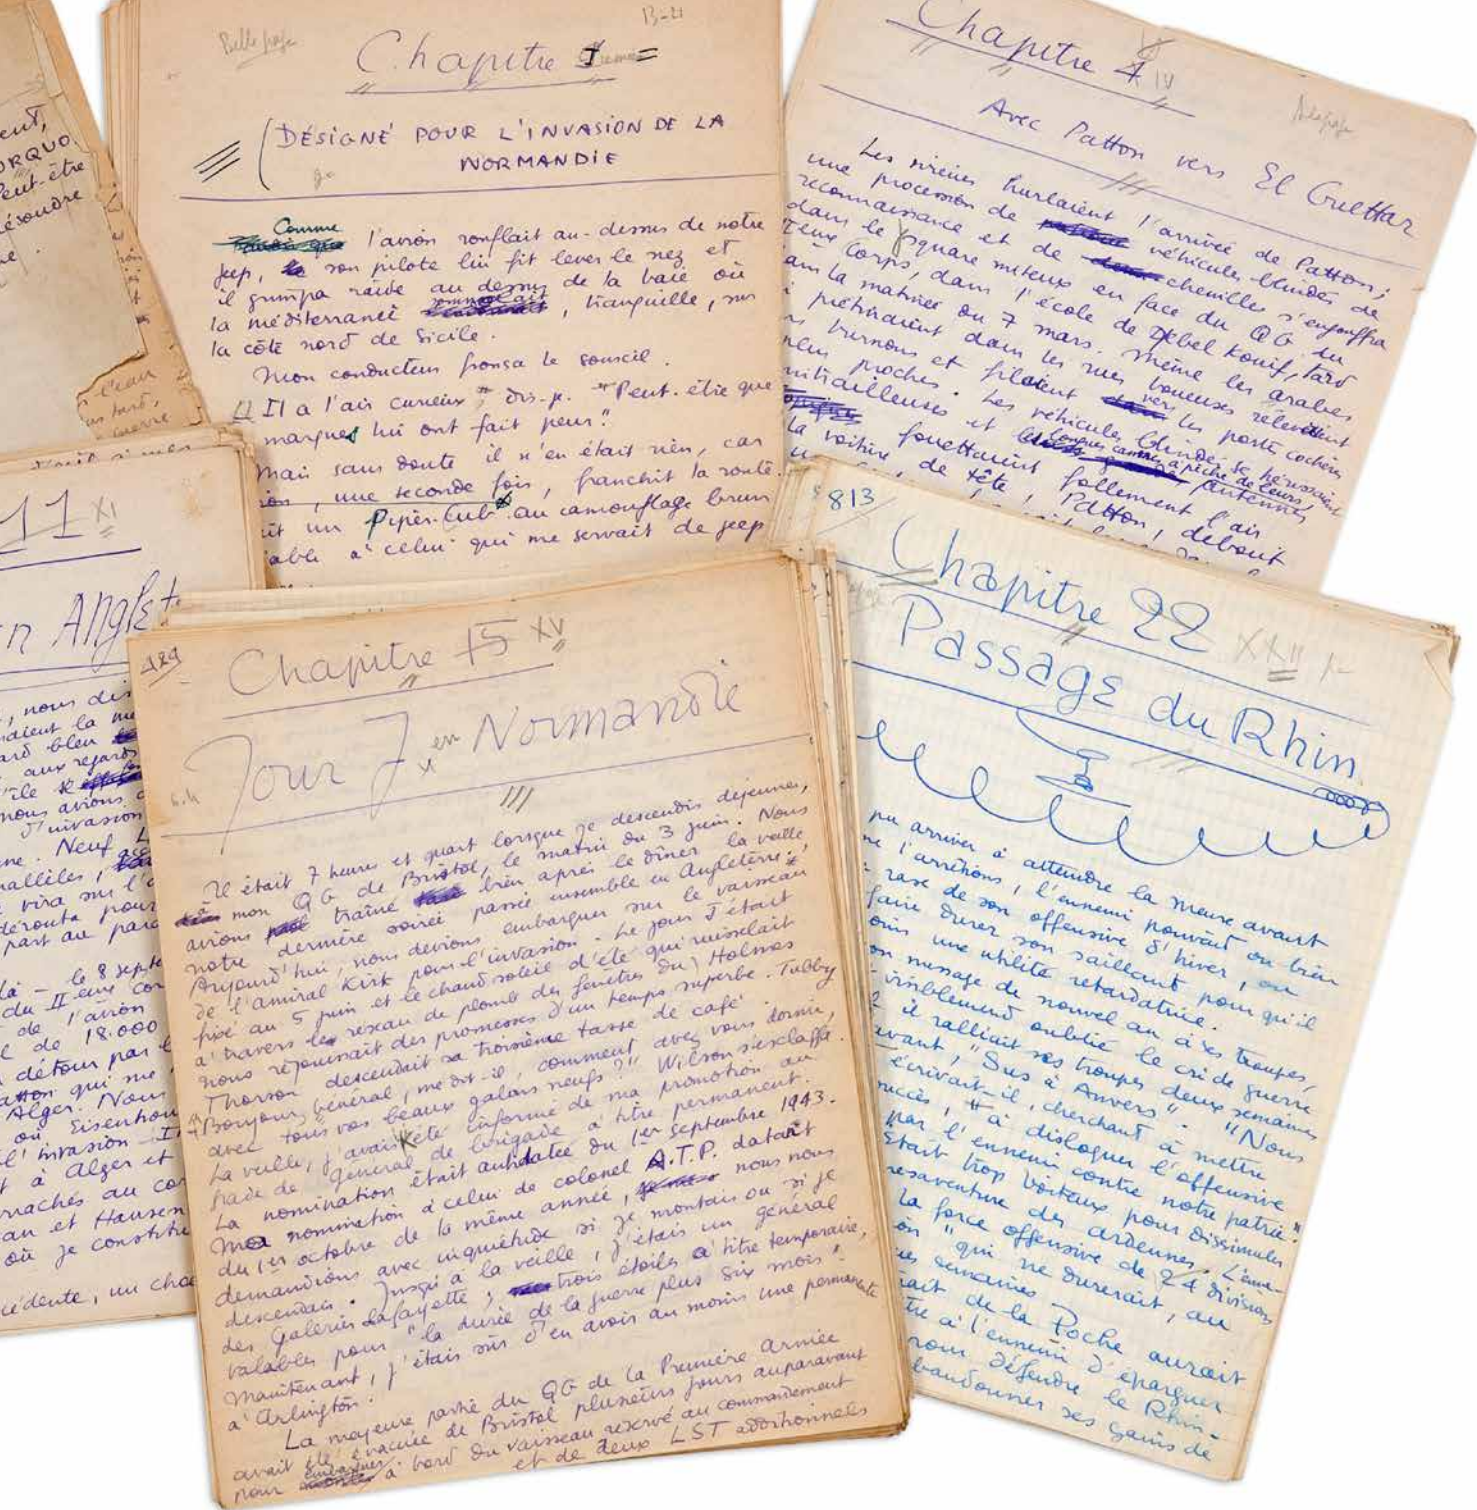 ent,
Peut-être
résoudre
l'eau
Belle page
13-21
Chapitre I
DÉSIGNÉ POUR L'INVASION DE LA
NORMANDIE
Comme l'avion ronflait au-dessus de notre
jeep, son pilote lui fit lever le nez et
il grimpa raide au dessus de la baie où
la méditerranée , tranquille, sur
la côte nord de Sicile.
Mon conducteur fronça le sourcil.
Il a l'air curieux, dis-je. "Peut-être que
marques lui ont fait peur."
Mais sans doute il n'en était rien, car
, une seconde fois, franchit la route.
un Piper-Cub au camouflage brun
able à celui qui me servait de jeep
Chapitre 4
IV
Avec Patton vers El Guettar
Les sirènes hurlaient l'arrivée de Patton;
une procession de véhicules blindés de
reconnaissance et de chenilles s'engouffra
dans le square miteux en face du QG du
IIeme Corps, dans l'école de Djebel Kouif, tard
dans la matinée du 7 mars. Même les arabes
qui piétinaient dans les rues boueuses relevèrent
burnous et filèrent vers les porte cochères
plus proches. Les véhicules blindés se hérissaient
mitrailleuses et longues cannes à pêche de leurs antennes
fouettaient follement l'air
la voiture de tête, Patton, debout
11 XI
en Anglet
, nous
aient la
bleu
aux regards
l'île
nous avions
d'invasion
Neuf
parallèles,
vira sur l'
part au
le 8 sept
du IIeme cor
de l'avion
de 18.000
détour par
qui me
Alger. Nous
où Eisenhow
l'invasion
à Alger et
au co
et Hansen
où je constit
cédente, un
429
Chapitre 15 XV
Jour J en Normandie
Il était 7 heures et quart lorsque je descendis déjeuner,
à mon QG de Bristol, le matin du 3 juin. Nous
avions traîné bien après le dîner la veille
notre dernière soirée passée ensemble en Angleterre.
Aujourd'hui, nous devions embarquer sur le vaisseau
de l'amiral Kirk pour l'invasion. Le jour J était
fixé au 5 juin et le chaud soleil d'été qui ruisselait
à travers le réseau de plomb des fenêtres du Holmes
nous réjouissait des promesses d'un temps superbe. Tubby
Thorson descendait sa troisième tasse de café.
"Bonjour, général, me dit-il, comment avez vous dormi,
avec tous vos beaux galons neufs?" Wilson s'esclaffa.
La veille, j'avais été informé de ma promotion au
grade de Général de brigade à titre permanent.
La nomination était antidatée du 1er septembre 1943.
Ma nomination à celui de colonel A.T.P. datait
du 1er octobre de la même année, nous nous
demandions avec inquiétude si je montais ou si je
descendais. Jusqu'à la veille, j'étais un général
des Galeries Lafayette, trois étoiles à titre temporaire,
valables pour "la durée de la guerre plus six mois".
Maintenant, j'étais sûr d'en avoir au moins une permanente
à Arlington.
La majeure partie du QG de la Première Armée
avait été évacuée de Bristol plusieurs jours auparavant
pour embarquer à bord du vaisseau réservé au commandement
et de deux LST additionnels
813
Chapitre 22
XXII
Passage du Rhin
pu arriver à atteindre la Meuse avant
l'arrêtions, l'ennemi pouvait ou bien
de son offensive d'hiver, ou
faire durer son saillant pour qu'il
moins une utilité retardatrice.
son message de nouvel an à ses troupes,
visiblement oublié le cri de guerre
il ralliait ses troupes deux semaines
avant, "Sus à Anvers". "Nous
écrivait-il, cherchant à mettre
succès, à disloquer l'offensive
par l'ennemi contre notre patrie."
Était trop boiteux pour dissimuler
mésaventure des ardennes. L'enne-
la force offensive de 24 divisions
"qui ne durerait, au
semaines
de la Poche aurait
à l'ennemi d'épargner
pour défendre le Rhin.
abandonner ses gains de